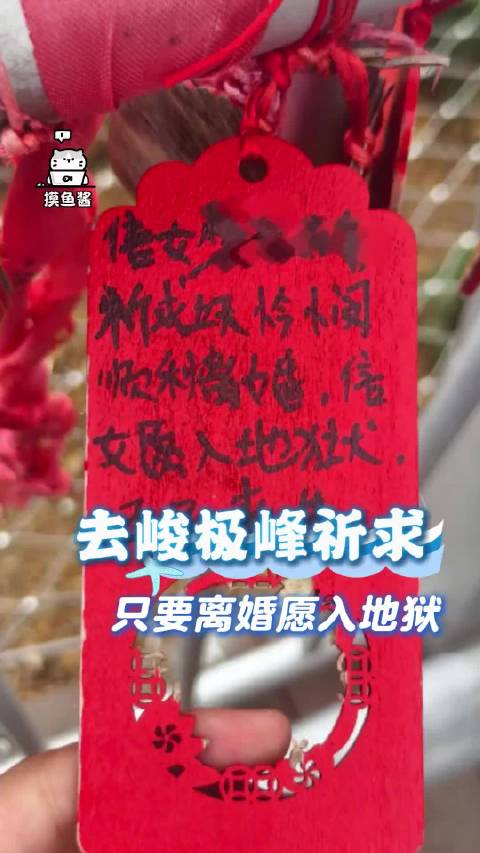 摸鱼酱
信女
怜悯
顺利离婚，信
女愿入地狱．
去峻极峰祈求
只要离婚愿入地狱